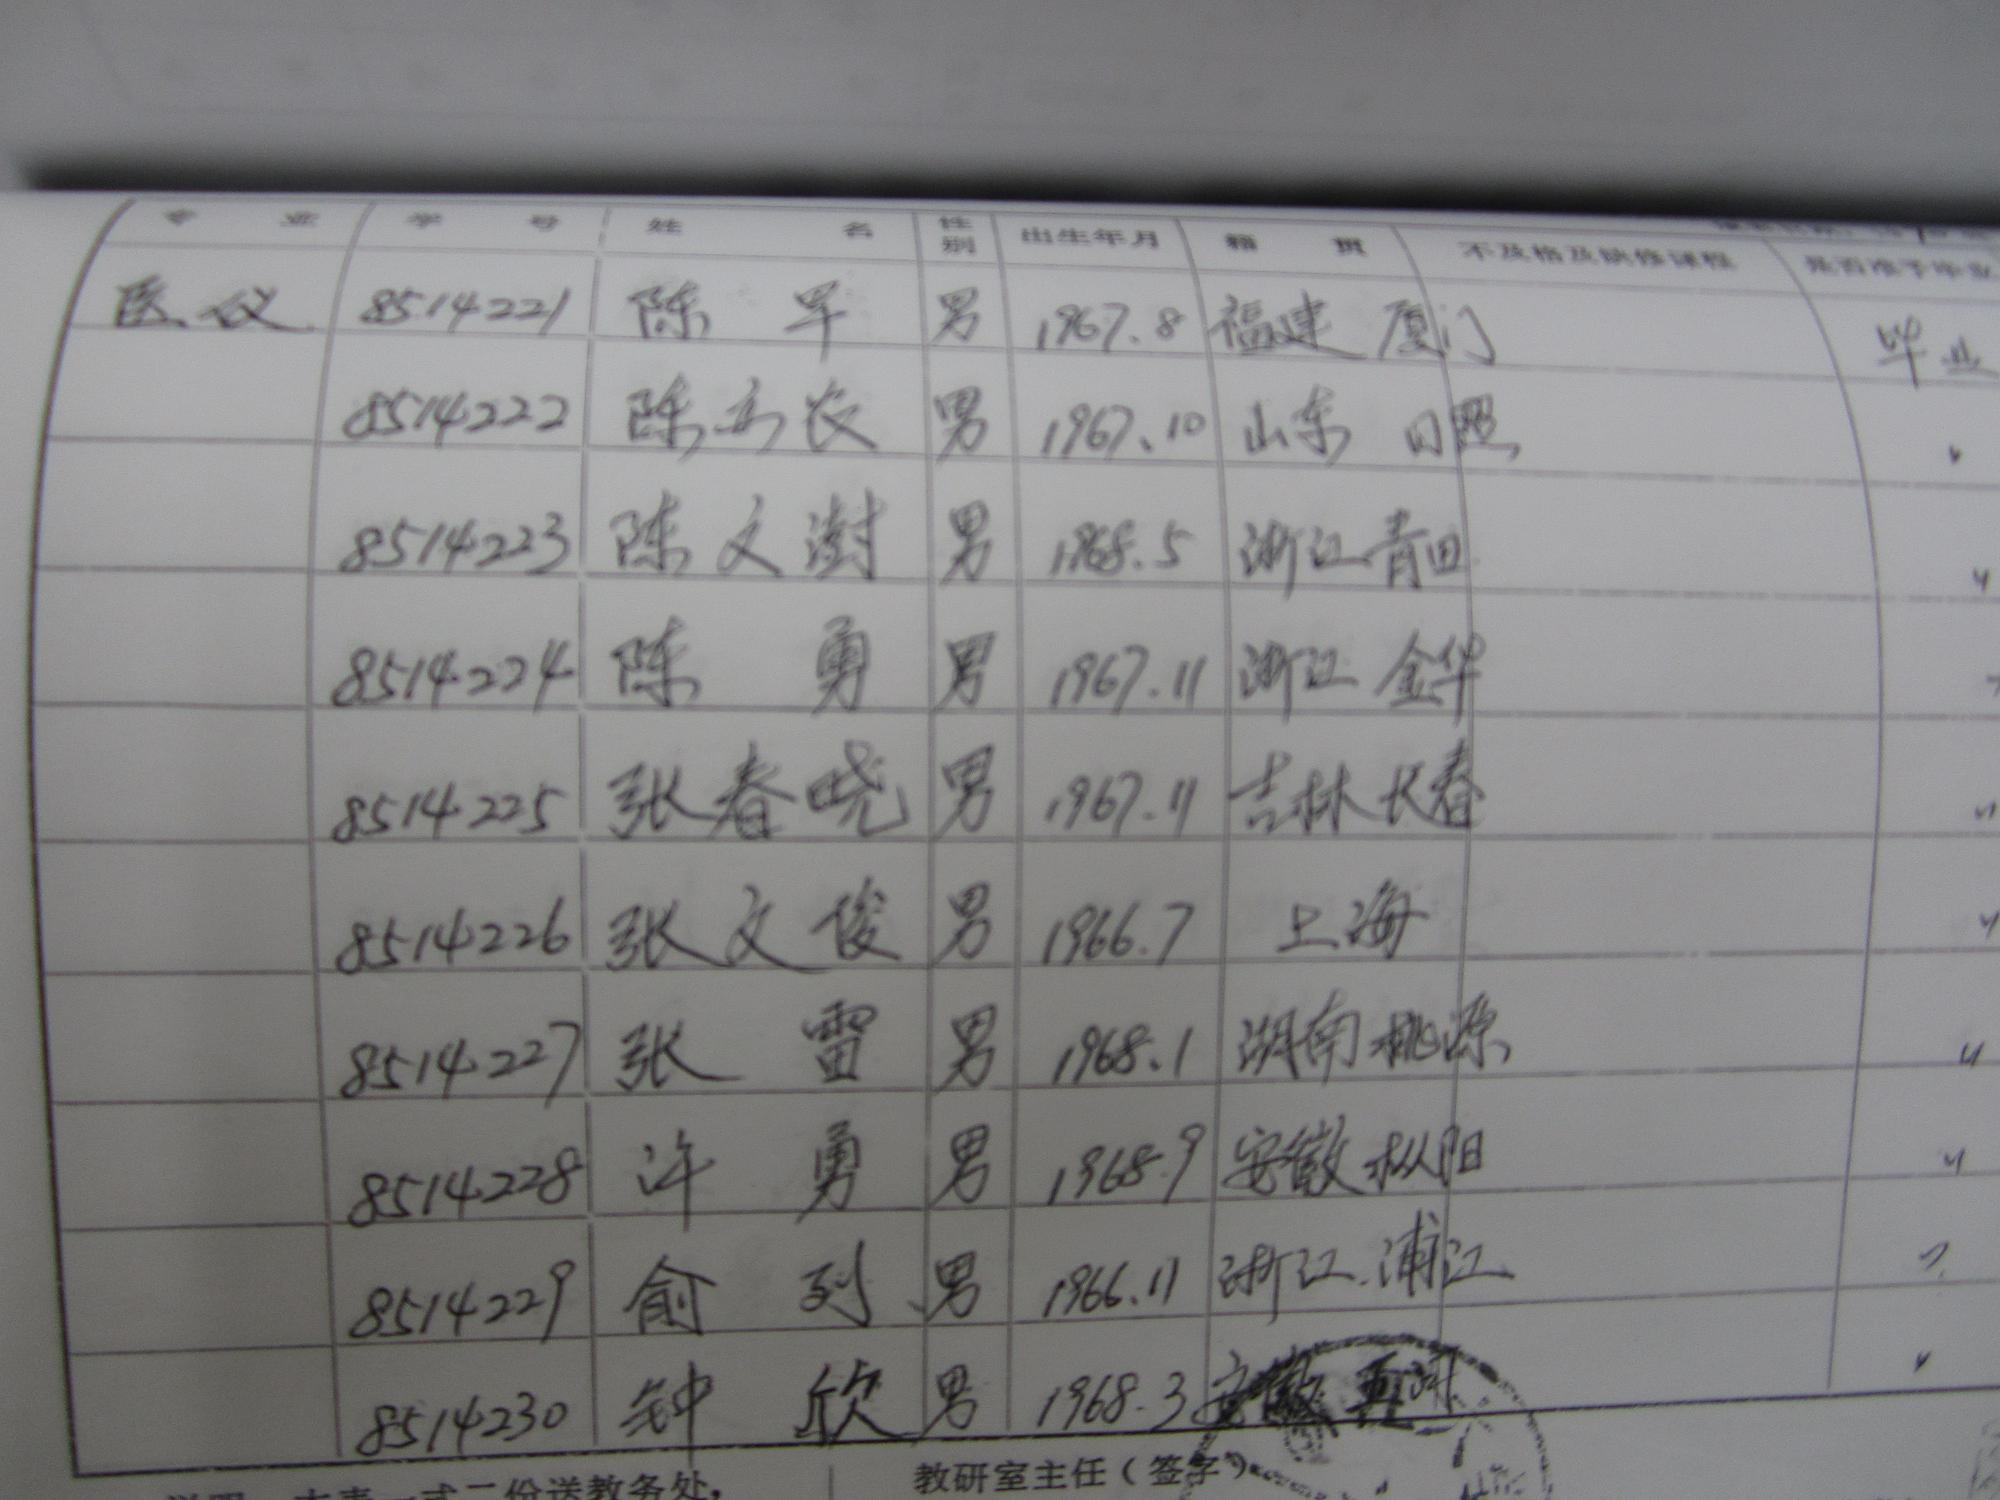 专 业 学 号 姓 名 性别 出生年月 籍 贯 不及格及缺修课程 是否准予毕业
医仪 8514221 陈 早 男 1967.8 福建 厦门 毕业
8514222 陈 农 男 1967.10 山东 日照 〃
8514223 陈文澍 男 1968.5 浙江青田 〃
8514224 陈 勇 男 1967.11 浙江 金华 〃
8514225 张春晓 男 1967.11 吉林长春 〃
8514226 张文俊 男 1966.7 上海 〃
8514227 张 雷 男 1968.1 湖南桃源 〃
8514228 许 勇 男 1968.9 安徽枞阳 〃
8514229 俞 列 男 1966.11 浙江.浦江 〃
8514230 钟 欣 男 1968.3 安徽 〃
本表一式二份送教务处, 教研室主任（签字）